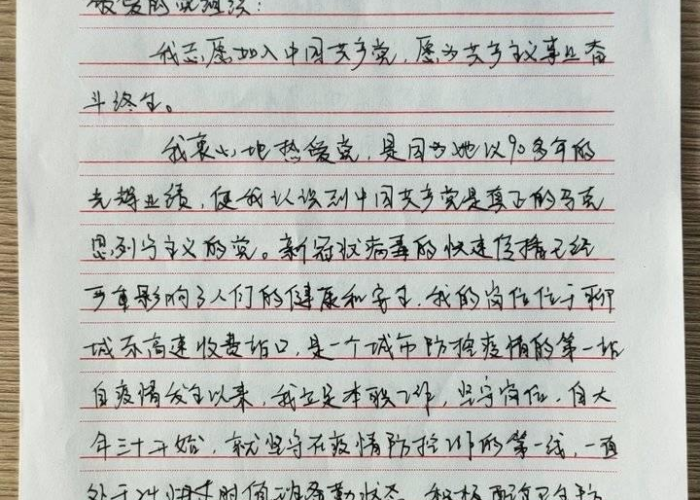 敬爱的党组织:
我志愿加入中国共产党,愿为共产主义事业奋
斗终生。
我衷心地热爱党,是因为她以90多年的
光辉业绩,使我认识到中国共产党是真正的马克
思列宁主义的党。新冠状病毒的快速传播已经
严重影响了人们的健康和安全,我的岗位位于聊
城东高速收费站口,是一个城市防控疫情的第一站
自疫情发生以来,我立足本职工作,坚守岗位,自大
年三十开始,就坚守在疫情防控工作的第一线,一直
处于
时值
备勤状态
积极配合